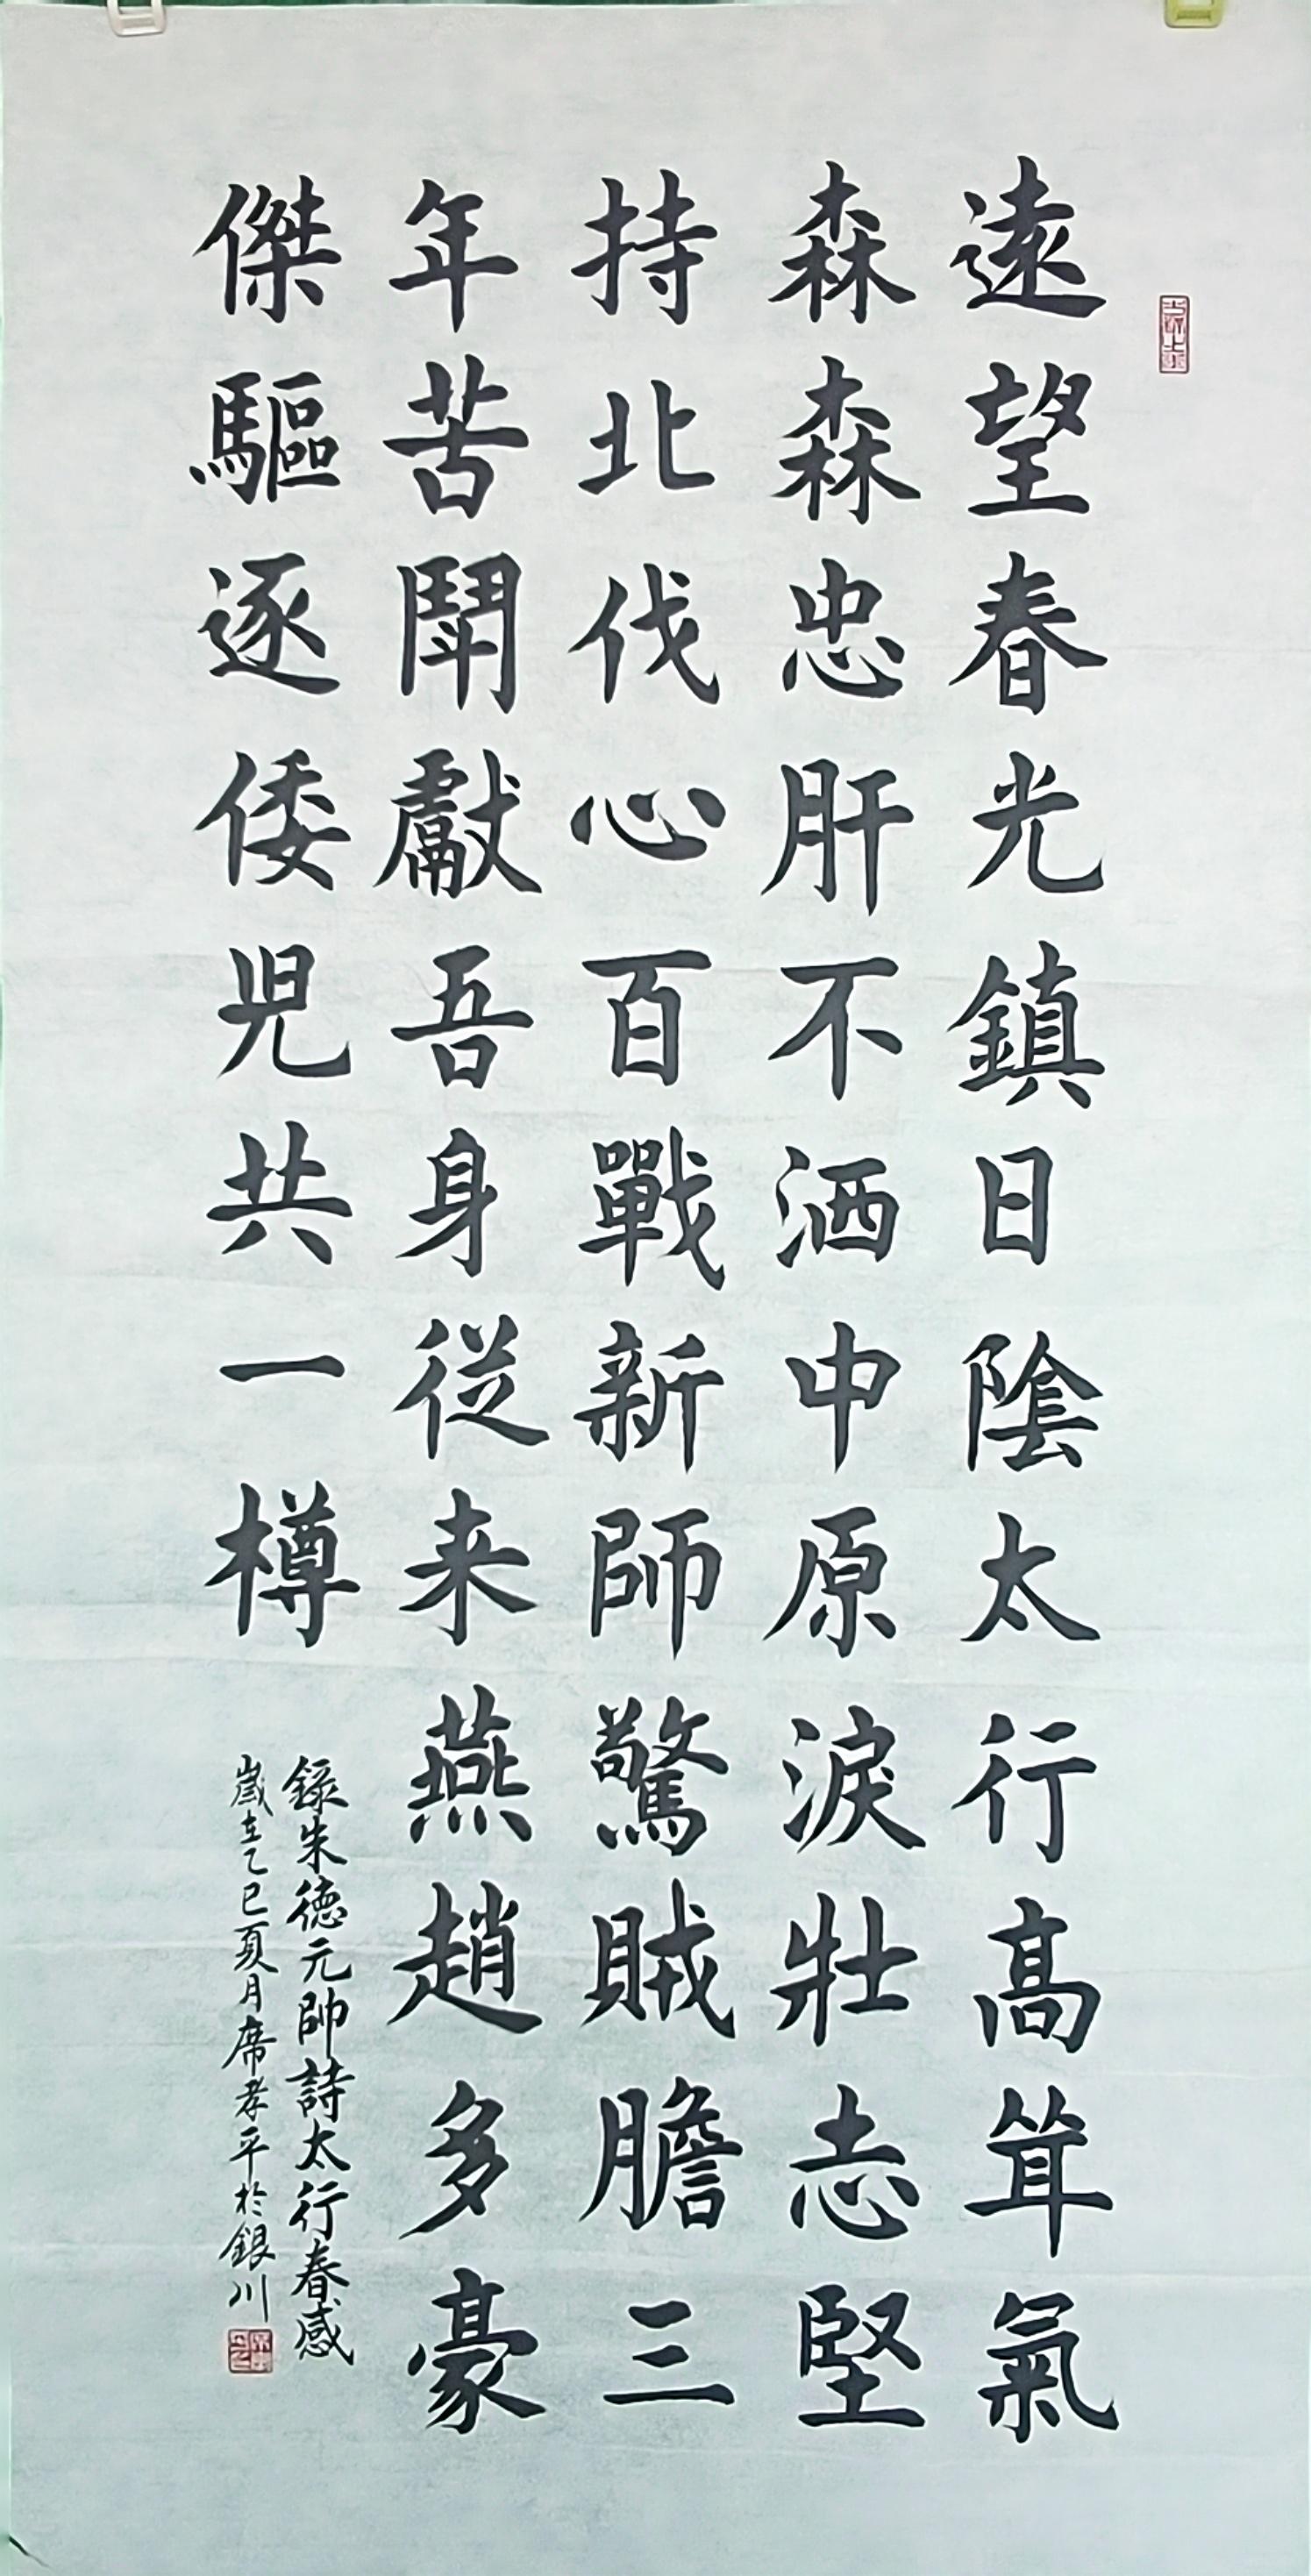 遠望春光鎮日陰太行高聳氣
森森忠肝不洒中原淚壯志堅
持北伐心百戰新師驚賊膽三
年苦鬪獻吾身従来燕趙多豪
傑驅逐倭児共一樽
録朱德元帥詩太行春感
歲在乙巳夏月席孝平於銀川